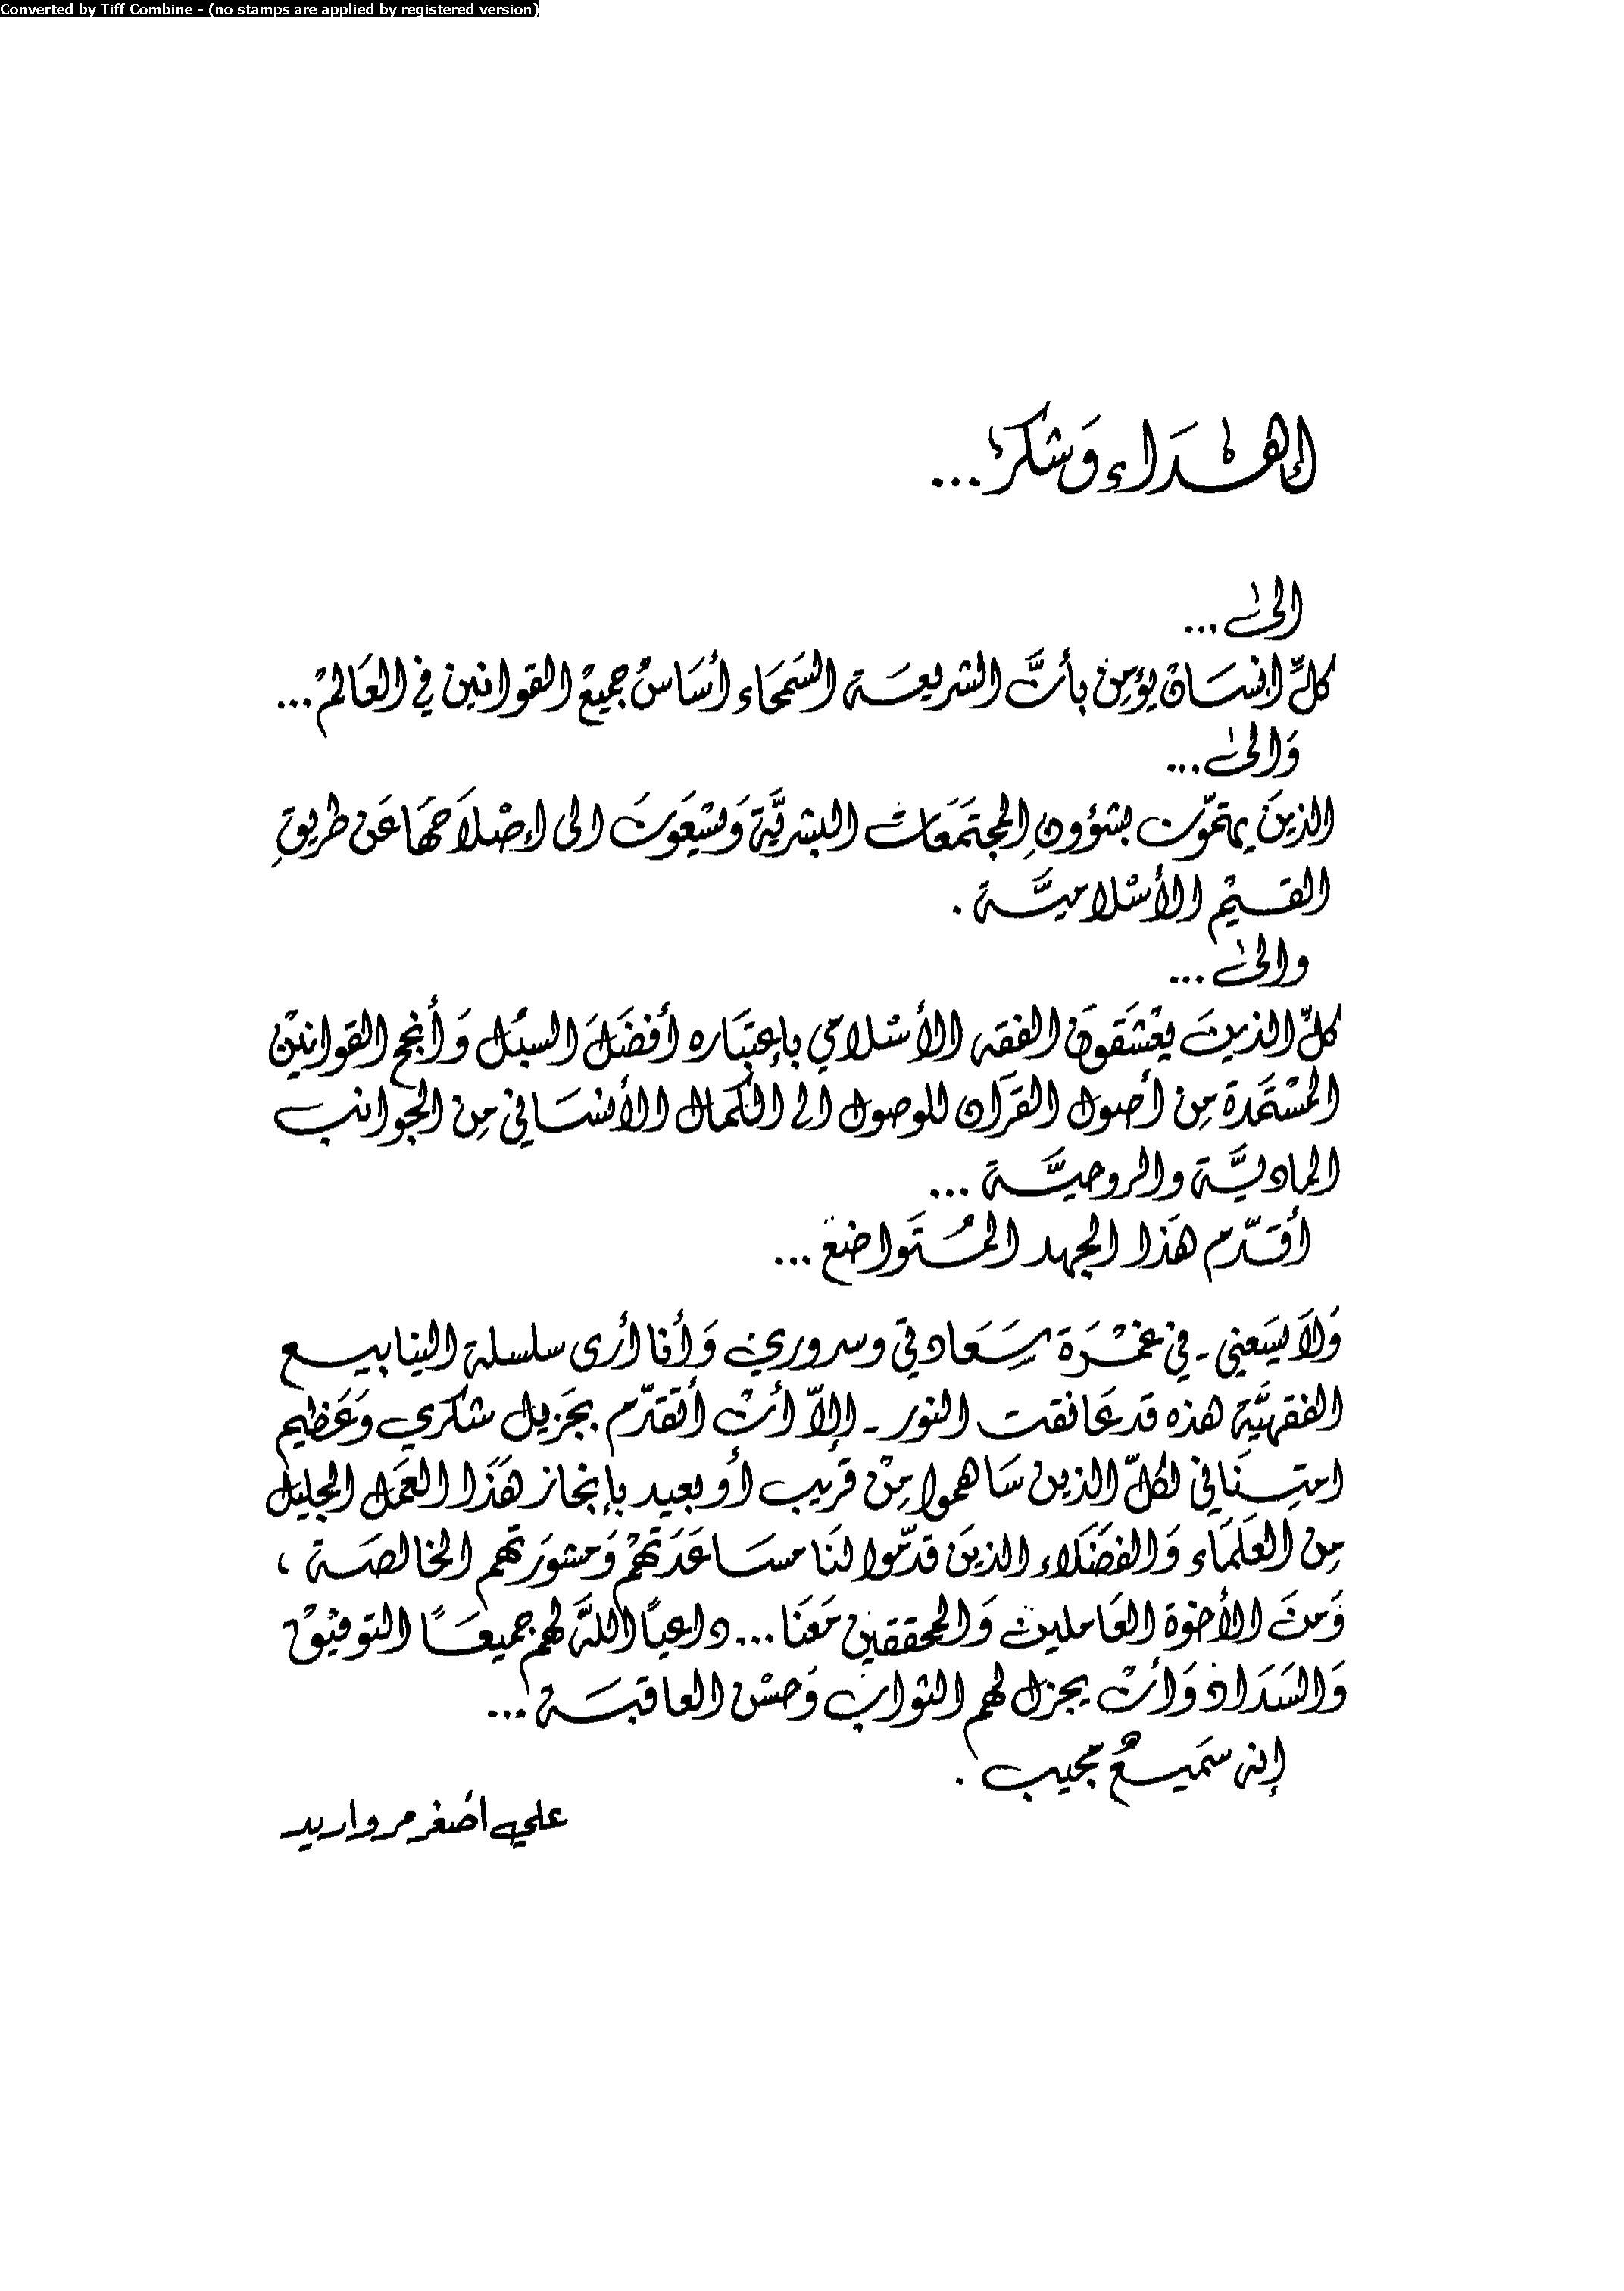 Converted by Tiff Combine - (no stamps are applied by registered version)
إهداء وشكر ...
الى ...
كلّ انسان يؤمن بأنّ الشريعة السمحاء أساس جميع القوانين في العالم ...
والى ...
الذين يهتمّون بشؤون المجتمعات البشريّة ويسعون الى إصلاحها عن طريق
القيم الأسلاميّة .
والى ...
كلّ الذين يعشقون الفقه الأسلامي بإعتباره أفضل السبل وأنجح القوانين
المستمدة من أصول القرآن للوصول الى الكمال الأنساني من الجوانب
الماديّة والروحيّة ...
أقدّم هذا الجهد المتواضع ...
ولا يسعني - في غمرة سعادتي وسروري وأنا أرى سلسلة الينابيع
الفقهيّة هذه قد عانقت النور - إلاّ أن أتقدّم بجزيل شكري وعظيم
امتناني لكلّ الذين ساهموا من قريب أو بعيد بإنجاز هذا العمل الجليل
من العلماء والفضلاء الذين قدّموا لنا مساعدتهم ومشورتهم الخالصة ،
ومن الأخوة العاملين والمحققين معنا ... داعياً اللّه لهم جميعاً التوفيق
والسداد وأن يجزل لهم الثواب وحسن العاقبة ...
إنه سميعٌ مجيب .
علي اصغر مرواريد